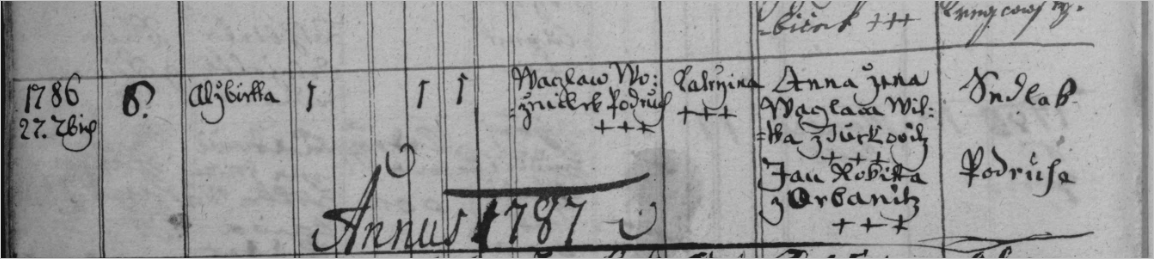 =bicěk +++
1786
27. 7bris
8.
Alžbietta
1
1
1
Waczlaw Wo:
=zniček Podruh
+++
Katržina
+++
Anna žena
Waczlawa Wil:
=ka z Jurkowitz
+++
Jan Kobitka
z Urbanitz
+++
Sedlak
Podruh
Annus 1787